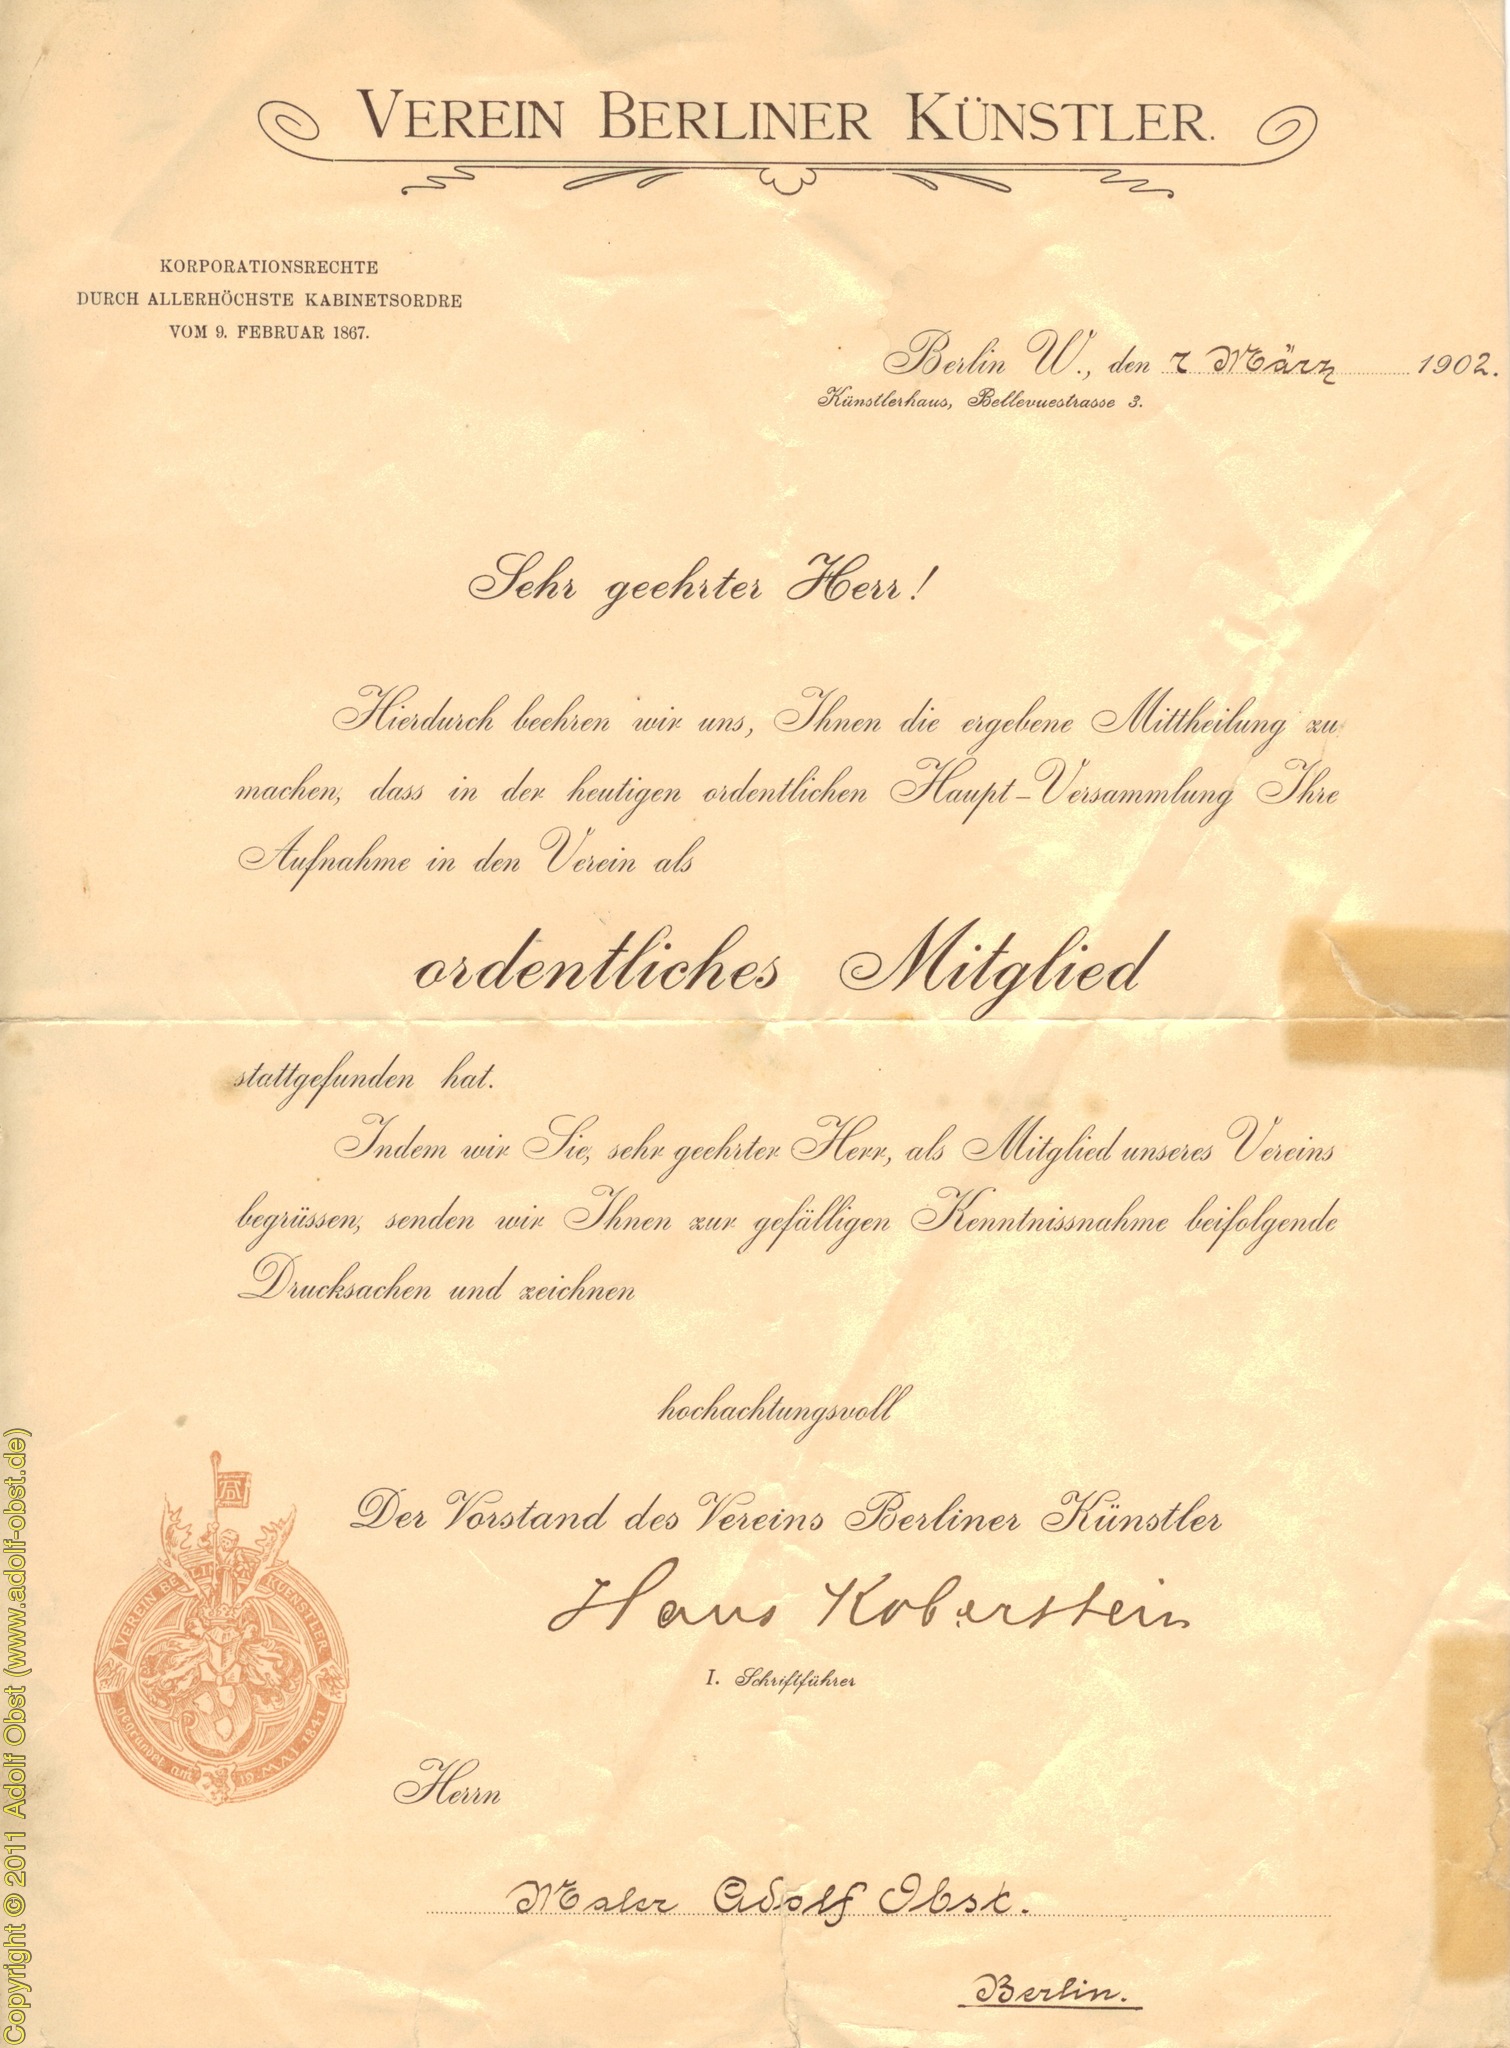 VEREIN BERLINER KÜNSTLER.
KORPORATIONSRECHTE
DURCH ALLERHÖCHSTE KABINETSORDRE
VOM 9. FEBRUAR 1867.
Berlin W., den 7 März 1902.
Künstlerhaus, Bellevuestrasse 3.
Sehr geehrter Herr!
Hierdurch beehren wir uns, Ihnen die ergebene Mittheilung zu
machen, dass in der heutigen ordentlichen Haupt-Versammlung Ihre
Aufnahme in den Verein als
ordentliches Mitglied
stattgefunden hat.
Indem wir Sie, sehr geehrter Herr, als Mitglied unseres Vereins
begrüssen, senden wir Ihnen zur gefälligen Kenntnissnahme beifolgende
Drucksachen und zeichnen
hochachtungsvoll
Der Vorstand des Vereins Berliner Künstler
Hans Koberstein
I. Schriftführer
AD
VEREIN BERLINER KUENSTLER
gegründet am 19. MAI 1841
Herrn
Maler Adolf Obst.
Berlin.
Copyright © 2011 Adolf Obst (www.adolf-obst.de)